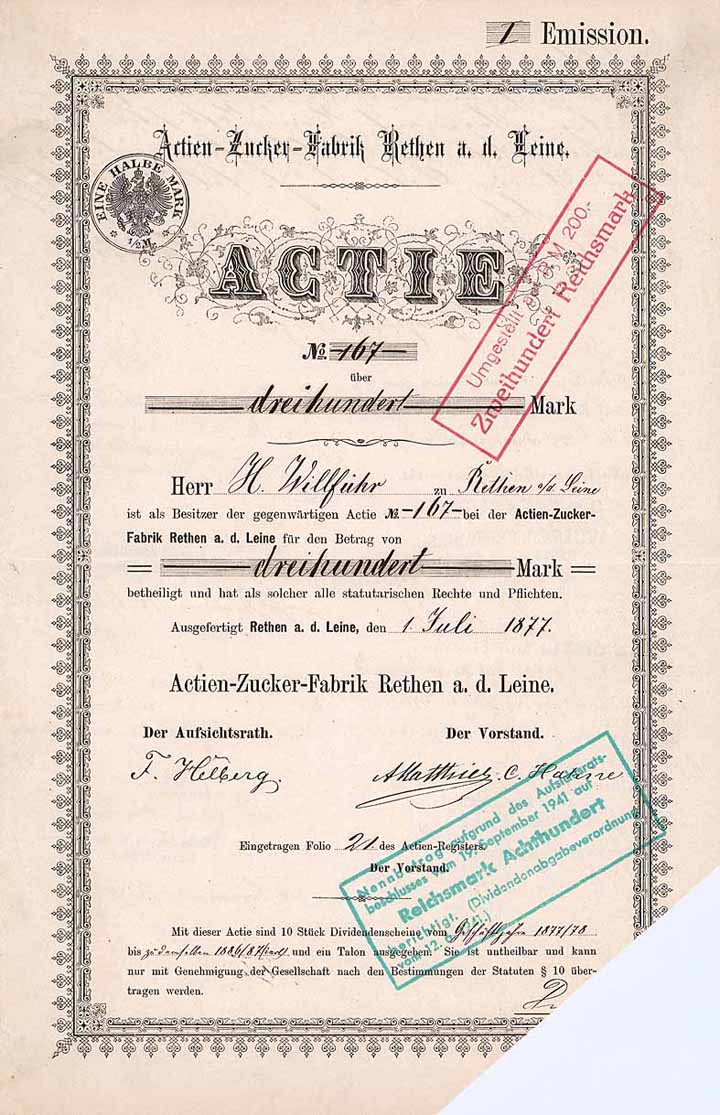 I Emission.
Actien-Zucker-Fabrik Rethen a. d. Leine.
EINE HALBE MARK
1/2 M.
ACTIE
Umgestellt auf R M 200.-
Zweihundert Reichsmark
No. 167
über
dreihundert Mark
Herr H. Willführ zu Rethen a/d. Leine
ist als Besitzer der gegenwärtigen Actie No. 167 bei der Actien-Zucker-
Fabrik Rethen a. d. Leine für den Betrag von
dreihundert Mark
betheiligt und hat als solcher alle statutarischen Rechte und Pflichten.
Ausgefertigt Rethen a. d. Leine, den 1. Juli 1877.
Actien-Zucker-Fabrik Rethen a. d. Leine.
Der Aufsichtsrath. Der Vorstand.
F. Helberg.
Eingetragen Folio 21. des Actien-Registers.
Der Vorstand.
Nennbetrag aufgrund des Aufsichtsrats-
beschlusses vom 19. September 1941 auf
Reichsmark Achthundert
berichtigt. (Dividendenabgabeverordnung
vom 12.
Mit dieser Actie sind 10 Stück Dividendenscheine vom Geschäftsjahre 1877/78
bis zu demselben 1886/87 und ein Talon ausgegeben. Sie ist untheilbar und kann
nur mit Genehmigung der Gesellschaft nach den Bestimmungen der Statuten § 10 über-
tragen werden.